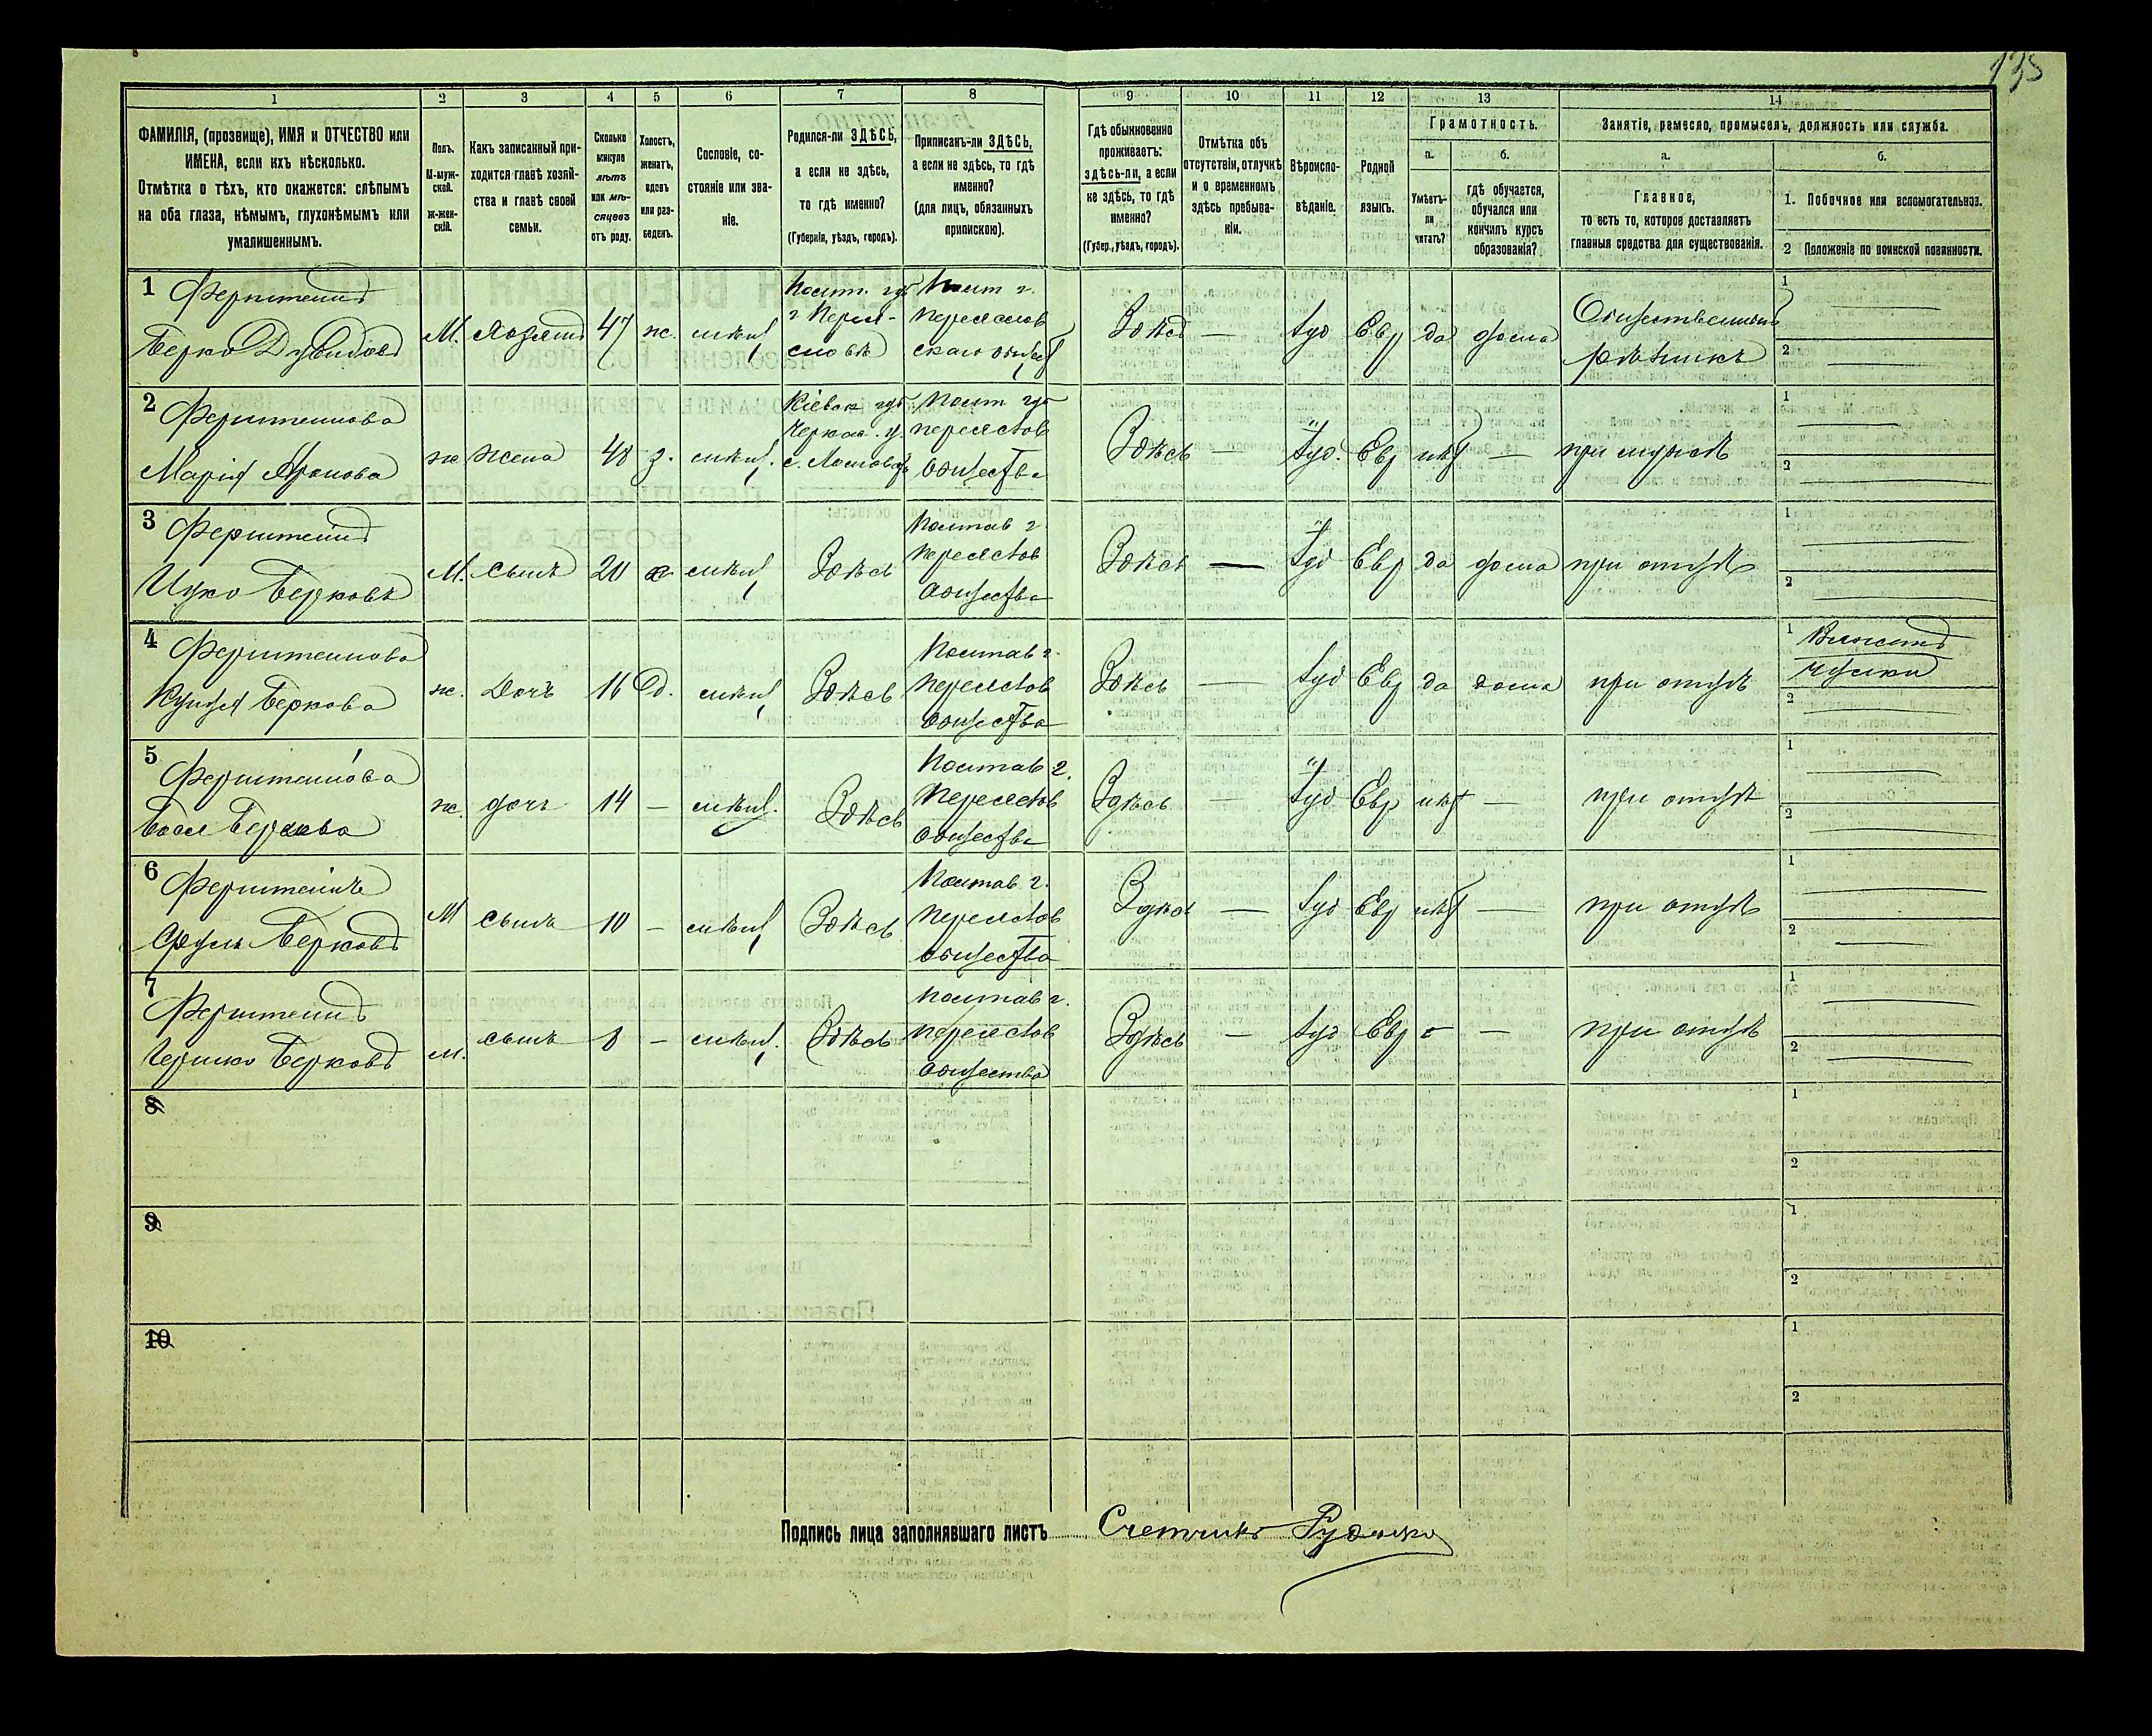 135
1 2 3 4 5 6 7 8 9 10 11 12 13 14
ФАМИЛІЯ, (прозвище), ИМЯ и ОТЧЕСТВО или
ИМЕНА, если ихъ нѣсколько.
Отмѣтка о тѣхъ, кто окажется: слѣпымъ
на оба глаза, нѣмымъ, глухонѣмымъ или
умалишеннымъ.
Полъ.
М-муж-
ской.
ж-жен-
скій.
Какъ записанный при-
ходится главѣ хозяй-
ства и главѣ своей
семьи.
Сколько
минуло
лѣтъ
или мѣ-
сяцевъ
отъ роду.
Холостъ,
женатъ,
вдовъ
или раз-
веденъ.
Сословіе, со-
стояніе или зва-
ніе.
Родился-ли ЗДѢСЬ,
а если не здѣсь,
то гдѣ именно?
(Губернія, уѣздъ, городъ).
Приписанъ-ли ЗДѢСЬ,
а если не здѣсь, то гдѣ
именно?
(для лицъ, обязанныхъ
припискою).
Гдѣ обыкновенно
проживаетъ:
здѣсь-ли, а если
не здѣсь, то гдѣ
именно?
(Губер., уѣздъ, городъ).
Отмѣтка объ
отсутствіи, отлучкѣ
и о временномъ
здѣсь пребыва-
ніи.
Вѣроиспо-
вѣданіе.
Родной
языкъ.
Грамотность.
а.
Умѣетъ-
ли
читать?
б.
гдѣ обучается,
обучался или
кончилъ курсъ
образованія?
Занятіе, ремесло, промыселъ, должность или служба.
а.
Главное,
то есть то, которое доставляетъ
главныя средства для существованія.
б.
1. Побочное или вспомогательное.
2 Положеніе по воинской повинности.
1 Ферштейнъ
Берко Дувидовъ
М. Хозяинъ 47 ж. мѣщ.
Полт. губ
г Перея-
славѣ
Полт г.
Переяслав
скаго общест
Здѣсь — Іуд Евр да дома
Общественный
рѣзникъ
1
2
2 Ферштейнова
Марія Аронова
ж жена 48 з. мѣщ.
Кіевск губ.
Черкас. у.
Полт губ
переяслов
общества
Здѣсь — Іуд. Евр нѣт —
при мужѣ
1
2
3 Ферштейнъ
Ицко Берковъ
М. сынъ 20 х мѣщ Здѣсь
Полтав г.
переяслов
общества
Здѣсь — Іуд Евр да дома при отцѣ
1
2
4 Ферштейнова
Беркова
ж. Дочь 16 д. мѣщ Здѣсь
Полтав г.
переяслов
общества
Здѣсь — Іуд Евр да дома при отцѣ
1 Вяжетъ
чулки
2
5 Ферштейнова
Бася Беркова
ж. дочь 14 — мѣщ. Здѣсь
Полтав г.
переяслов
общества
Здѣсь — Іуд Евр нѣт — при отцѣ
1
2
6 Ферштейнъ
Берковъ
М сынъ 10 — мѣщ Здѣсь
Полтав г.
переяслов
общества
Здѣсь — Іуд Евр нѣт — при отцѣ
1
2
7 Ферштейнъ
Гершко Берковъ
м. сынъ 8 — мѣщ. Здѣсь
Полтав г.
переяслов
общества
Здѣсь — Іуд Евр — — при отцѣ
1
2
8
1
2
9
1
2
10
1
2
Подпись лица заполнявшаго листъ Счетчикъ